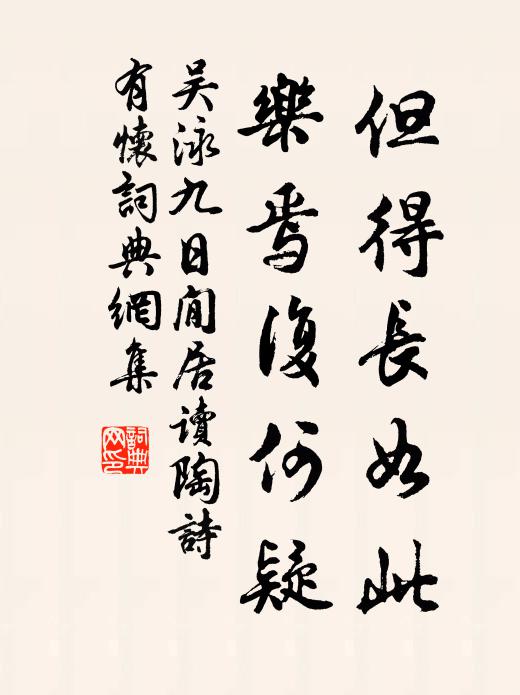 但得長如此
樂焉復何疑
吴泳九日閒居讀陶詩
有懷詞典網集
詞典網印